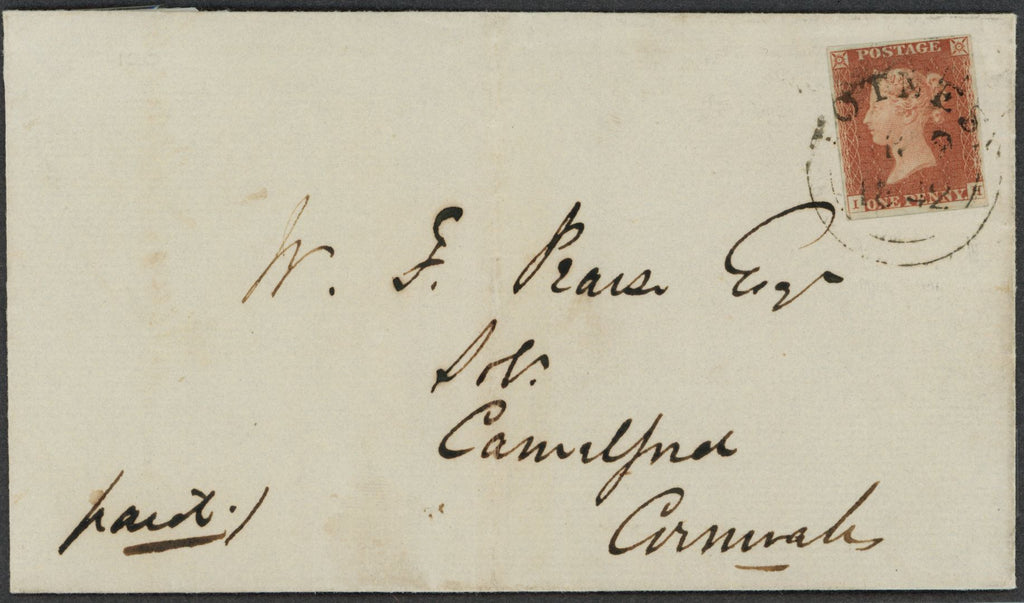 POSTAGE
TOTNES
ONE PENNY
W. F. Pearse Esqr
Solr.
Camelford
Cornwall
paid.